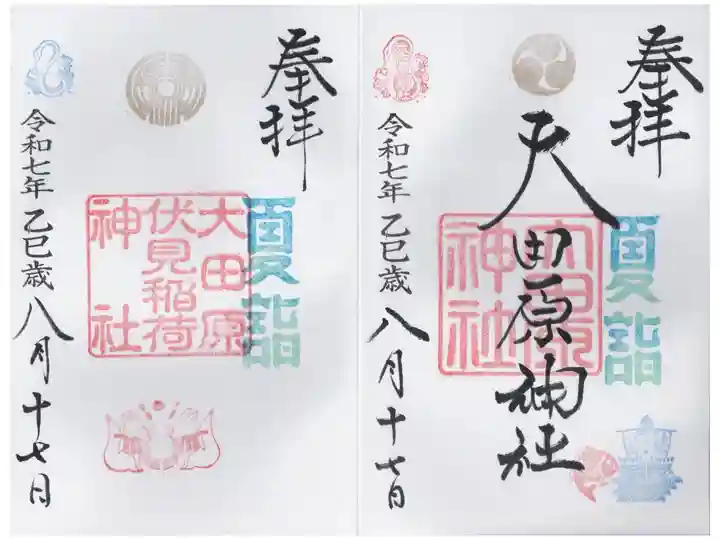 奉拝
夏詣
大田原神社
神社
令和七年 乙巳歳 八月十七日
奉拝
夏詣
大田原
伏見稲荷
神社
令和七年 乙巳歳 八月十七日